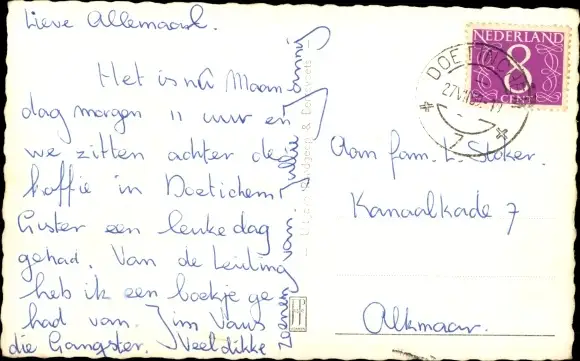 Lieve Allemaal.
Het is nú Maan
dag morgen 11 uur en
we zitten achter de
koffie in Doetichem
Gister een leuke dag
gehad. Van de Leuling
heb ik een boekje ge
had van. Jim Vaus
die Gangster. Veel dikke
zoenen van jullie Annij
NEDERLAND
8
CENT
DOETINCHEM
7
Aan fam. L. Stoker.
Kanaalkade 7
Alkmaar.